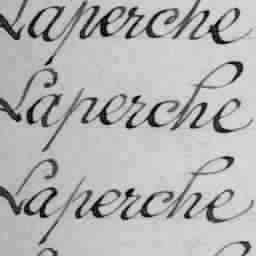 Laperche
Laperche
Laperche